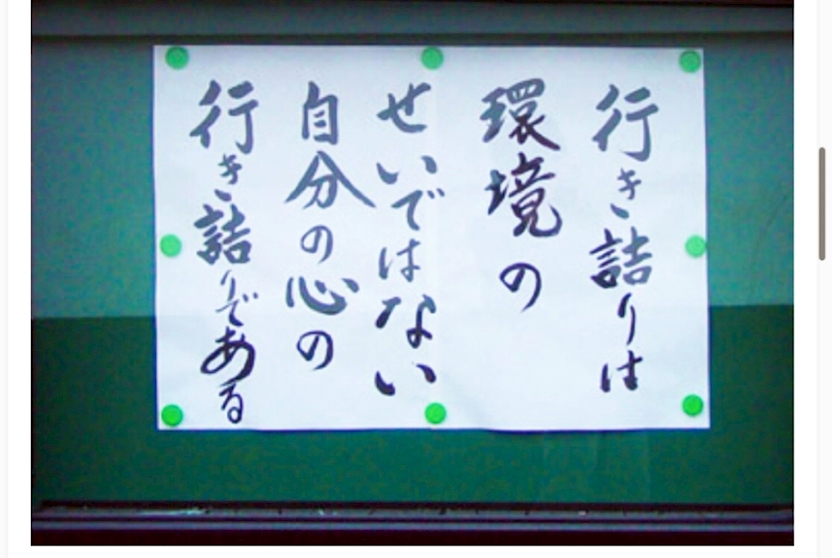 行き詰りは
環境の
せいではない
自分の心の
行き詰りである